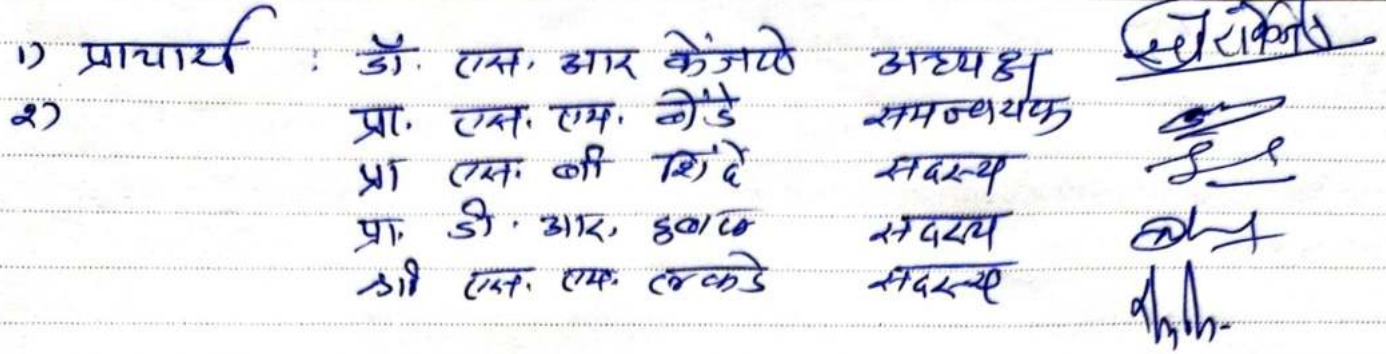 १) प्राचार्य : डॉ. एस. आर केंजळे अध्यक्ष
२) प्रा. एस. एम. बोंडे समन्वयक
प्रा एस. बी शिंदे सदस्य
प्रा. डी. आर. सदस्य
श्री एस. एम. सदस्य